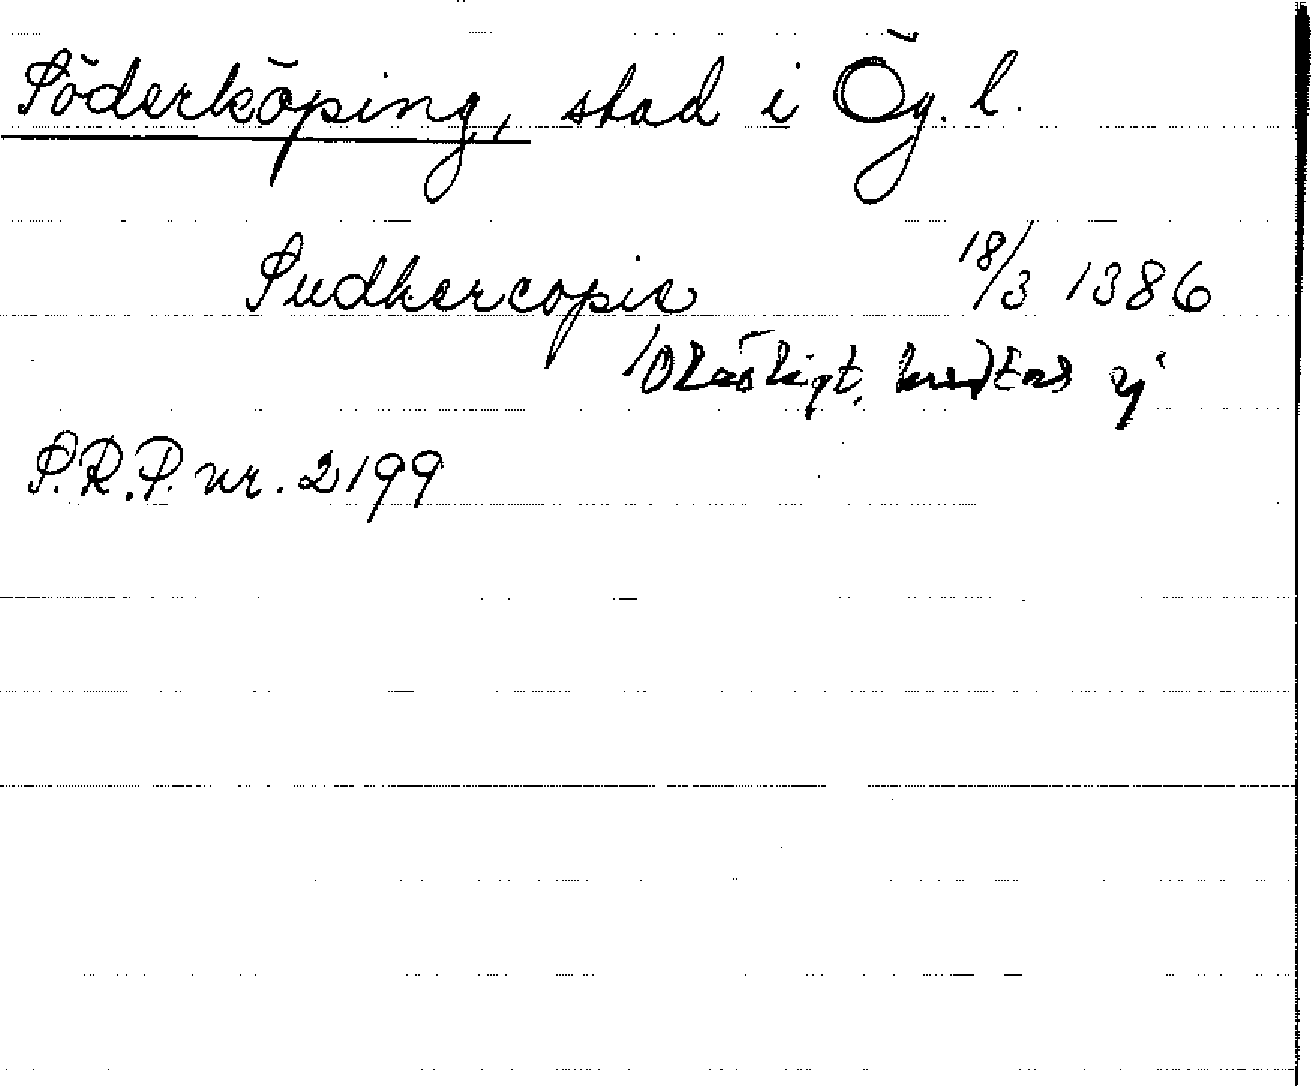 Söderköping, stad i Ög. l.
Sudhercopie 18/3 1386
Oläsligt, ej
S.R.P. nr. 2199